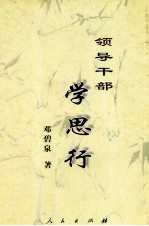 领导干部
学思行
邓碧泉 著
人民出版社